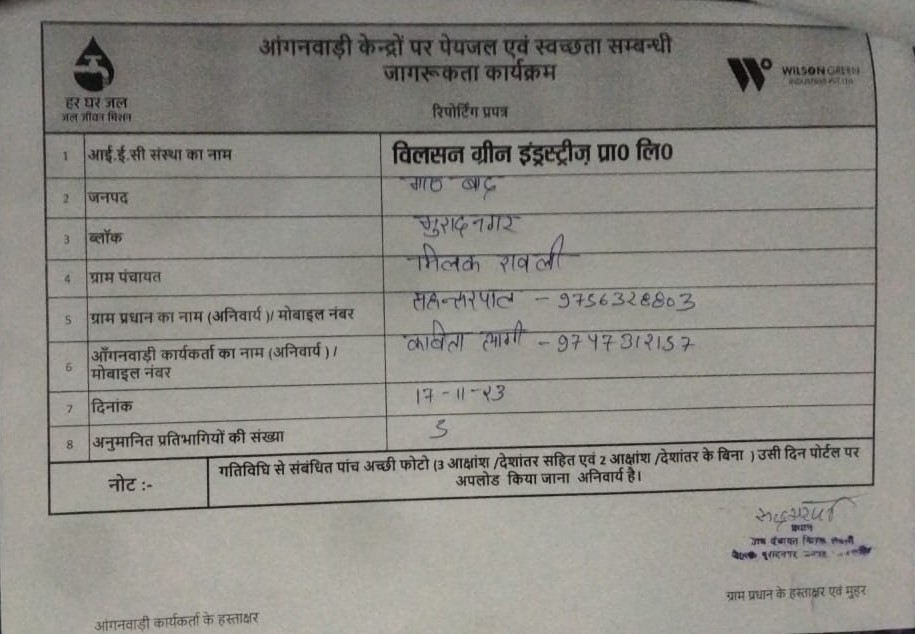 आंगनवाड़ी केन्द्रों पर पेयजल एवं स्वच्छता सम्बन्धी
जागरूकता कार्यक्रम
रिपोर्टिंग प्रपत्र
हर घर जल
जल जीवन मिशन
WILSON GREEN
INDUSTRIES PVT LTD
1 आई.ई.सी संस्था का नाम विलसन ग्रीन इंड्रस्ट्रीज़ प्रा0 लि0
2 जनपद
3 ब्लॉक मुरादनगर
4 ग्राम पंचायत मिलक रावली
5 ग्राम प्रधान का नाम (अनिवार्य )/ मोबाइल नंबर - 9756328803
6 आँगनवाड़ी कार्यकर्ता का नाम (अनिवार्य ) / मोबाइल नंबर कविता त्यागी - 9747312157
7 दिनांक 17-11-23
8 अनुमानित प्रतिभागियों की संख्या
नोट :- गतिविधि से संबंधित पांच अच्छी फोटो (3 आक्षांश /देशांतर सहित एवं 2 आक्षांश /देशांतर के बिना ) उसी दिन पोर्टल पर
अपलोड किया जाना अनिवार्य है।
प्रधान
ग्राम प्रधान के हस्ताक्षर एवं मुहर
आंगनवाड़ी कार्यकर्ता के हस्ताक्षर